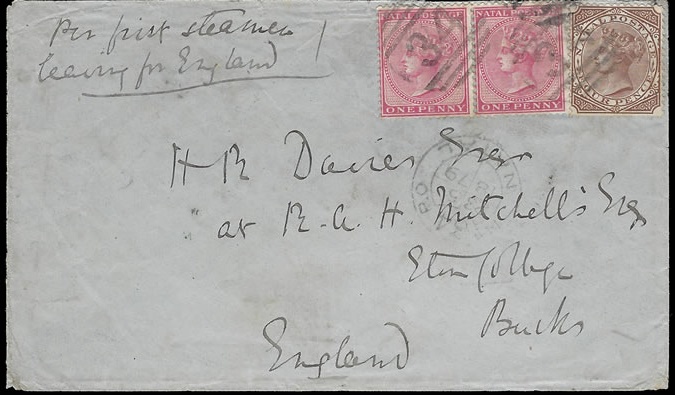 Per first steamer
leaving for England
NATAL POSTAGE
ONE PENNY
NATAL
ONE PENNY
NATAL POSTAGE
FOUR PENCE
H R Davies Esqr
at R. A. H. Mitchell's Esq
Eton College
Bucks
England